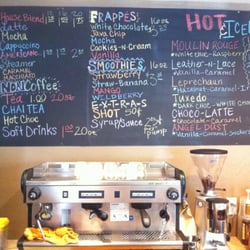 House Blend
Latte
Mocha
Cappuccino
Steamer
CARAMEL
MACCHIATO
NON Coffee
TEA 1.00 20oz
CHAI TEA
Hot Choc
Soft Drinks 20oz
FRAPPES! 16oz
White Chocolate
Java Chip
Mocha
Cookies-n-Cream
Vanilla
SMOOTHIES 16oz
Strawberry
Straw-Banana
MANGO
E-X-T-R-A-S
SHOT 50¢
Syrup/Sauce
HOT ICED
MOULIN ROUGE
White-Raspberry
Leather-n-Lace
Vanilla-Caramel
Leprechaun
Hazelnut-Caramel-I
Tuxedo
DARK CHOC-WHITE CHOC
CHOCO-LATTE
Chocolate-Caramel
ANGEL DUST
Vanilla-Cinnamon